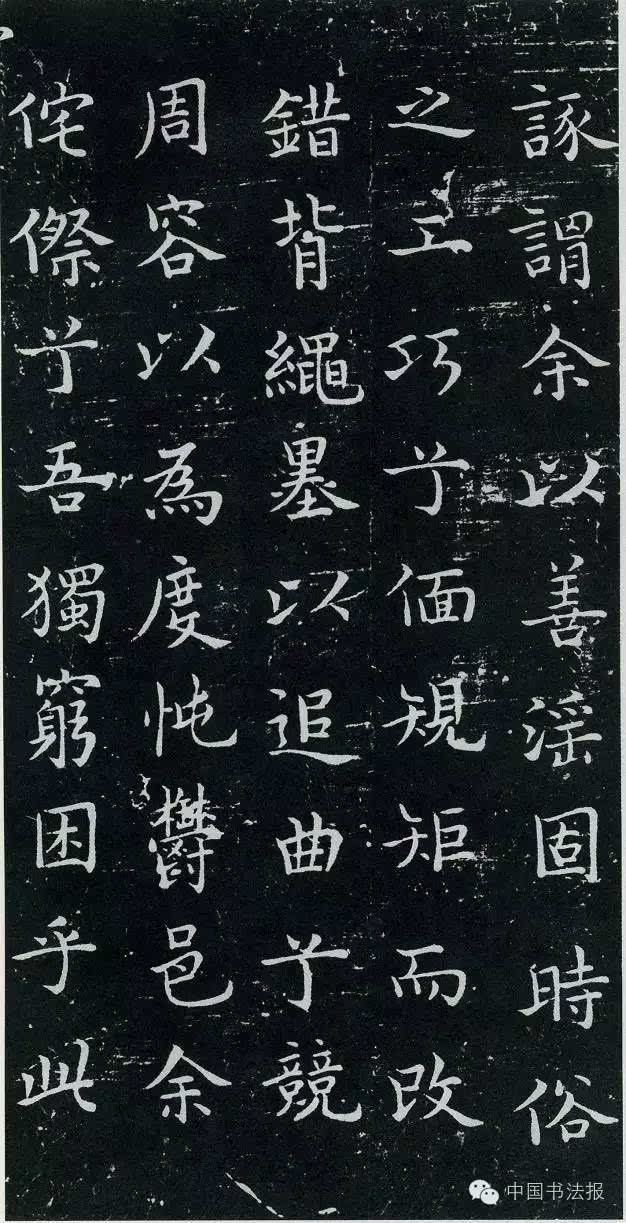 諑謂余以善滛固時俗
之工巧兮偭規矩而改
錯背繩墨以追曲兮競
周容以為度忳鬱邑余
侘傺兮吾獨窮困乎此
中国书法报